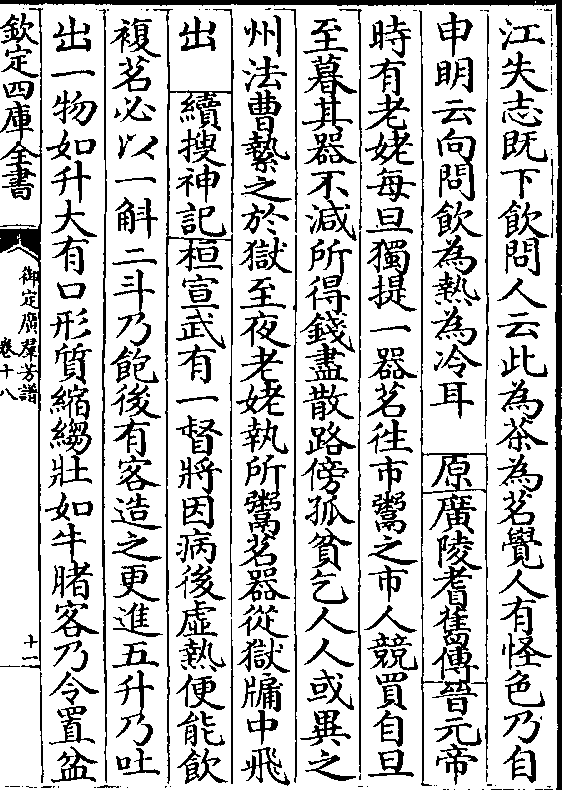 江失志既下飲問人云此為茶為茗覺人有怪色乃自
申明云向問飲為熱為冷耳　原廣陵耆舊傳晉元帝
時有老姥每旦獨提一器茗徃市鬻之市人競買自旦
至暮其器不減所得錢盡散路傍孤貧乞人人或異之
州法曹縶之於獄至夜老姥執所鬻茗器從獄牖中飛
出　續搜神記桓宣武有一督將因病後虛熱便能飲
複茗必以一斛二斗乃飽後有客造之更進五升乃吐
出一物如升大有口形質縮縐壯如牛腤客乃令置盆
欽定四庫全書
御定廣羣芳譜
卷十八
十二